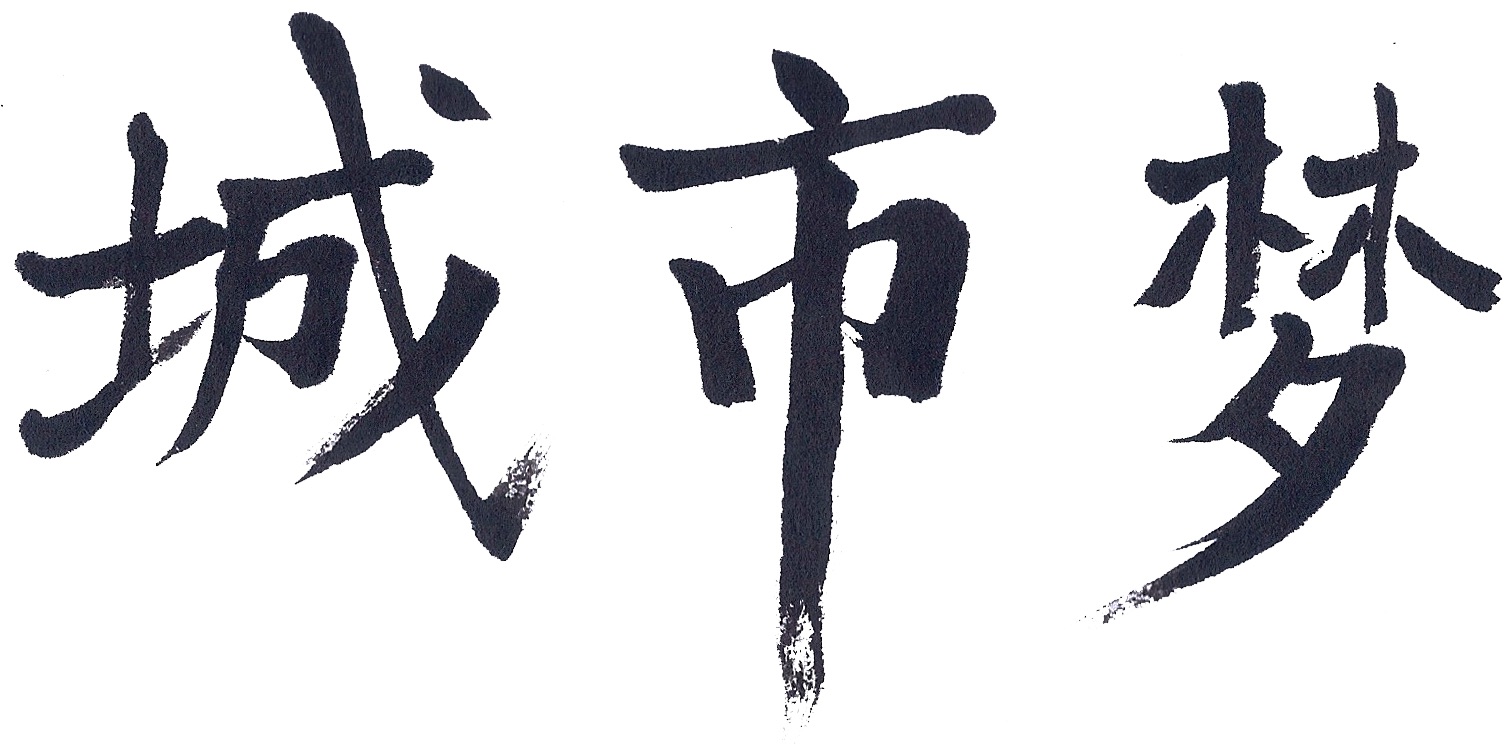 城市梦